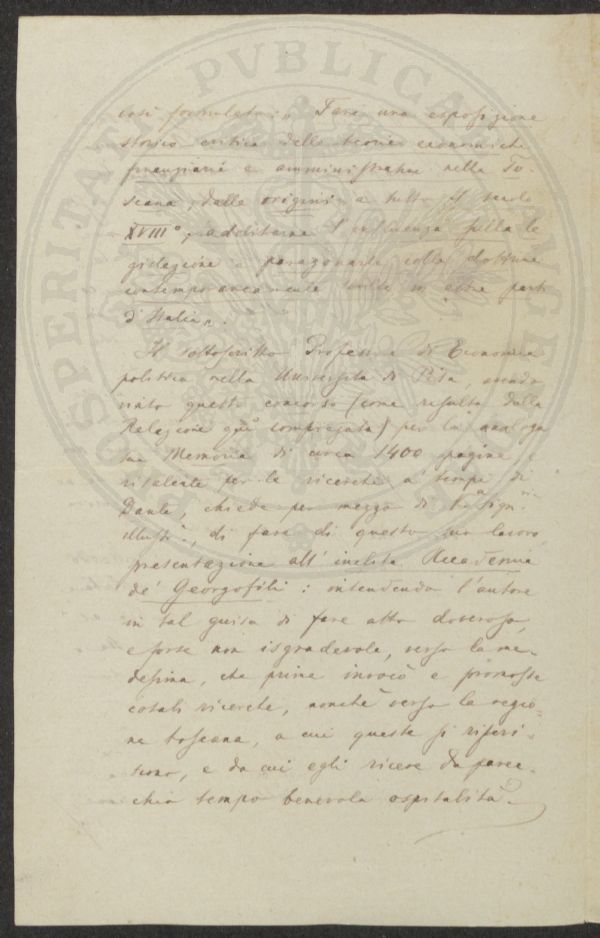 così formulato: „ Fare una esposizione
storico critica delle teorie economiche
finanziarie e amministrative nella To-
scana, dalle origini a tutto il secolo
XVIII°, additarne l'influenza sulla le
gislazione e paragonarle colle dottrine
contemporaneamente in altre parti
d'Italia „.
Il sottoscritto Professore di Economia
politica nella Università di Pisa, avendo
vinto questo concorso (come risulta dalla
Relazione qui compiegata) per la analoga
sua Memoria di circa 1400 pagine e
risalente per le ricerche a' tempi di
Dante, chiede per mezzo di V.a Sign.
illust.a, di fare di questo suo lavoro
presentazione all'inclita Accademia
de' Georgofili: intendendo l'autore
in tal guisa di fare atto doveroso,
e forse non isgradevole, verso la me-
desima, che prima invocò e promosse
cotali ricerche, nonchè verso la regio-
ne toscana, a cui queste si riferi-
scono, e da cui egli riceve da parec-
chio tempo benevola ospitalità.
PROSPERITATI PVBLICAE